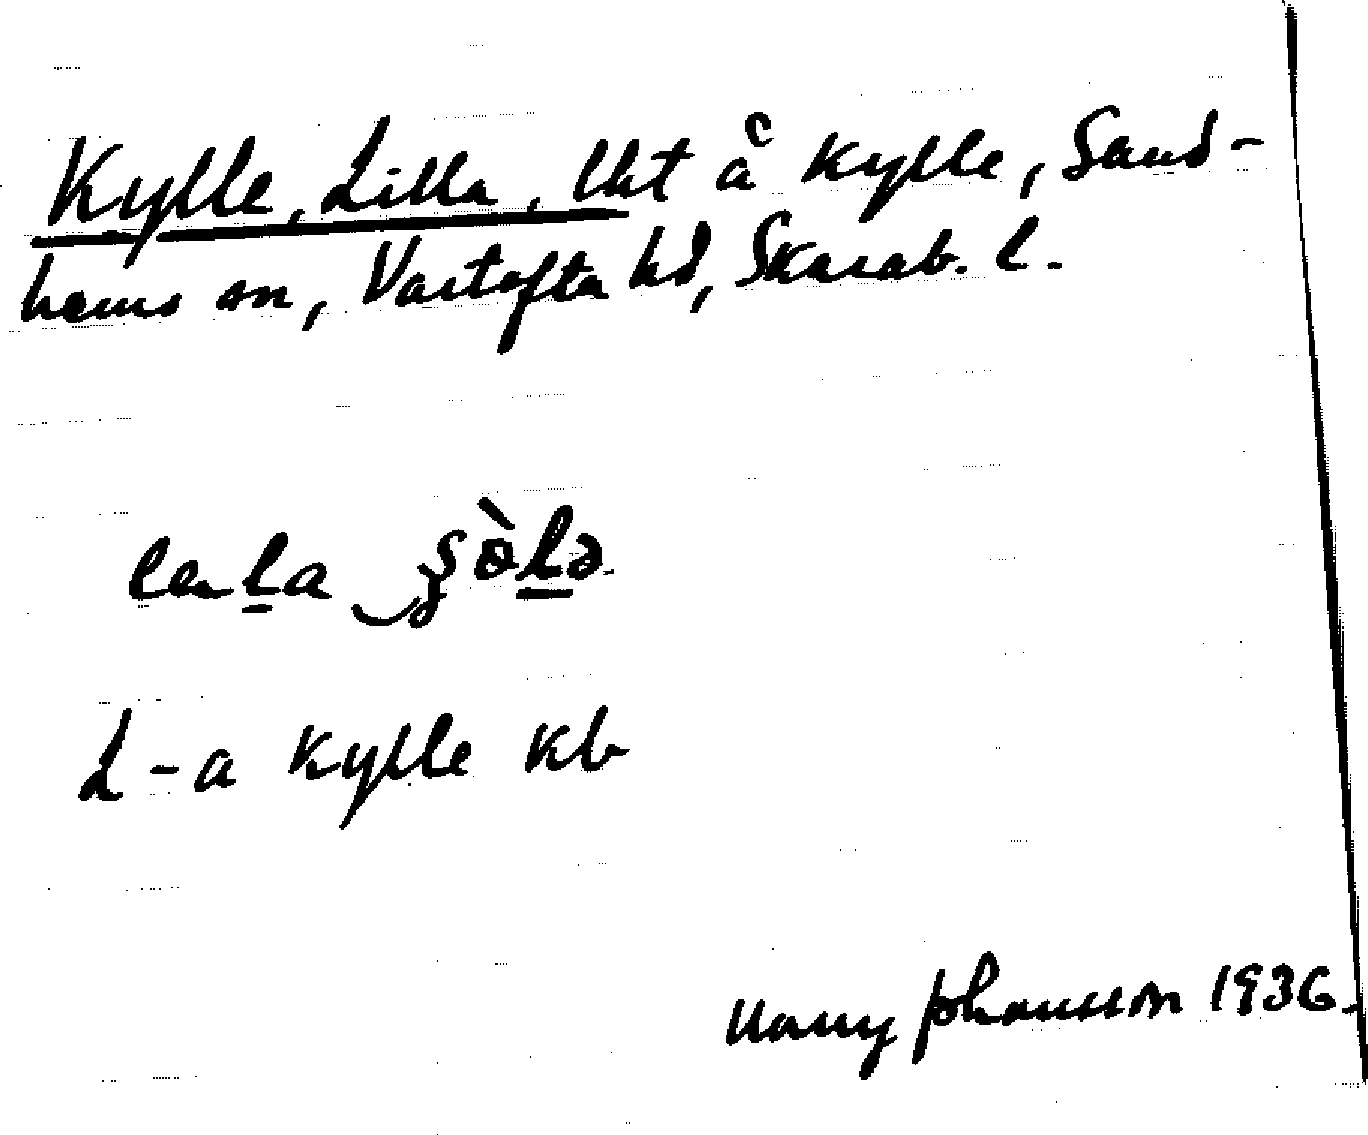 Kylle, Lilla, lht å Kylle, Sand-
hems sn, Vartofta hd, Skarab. l.
L-a Kylle kb
Harry Johansson 1936.